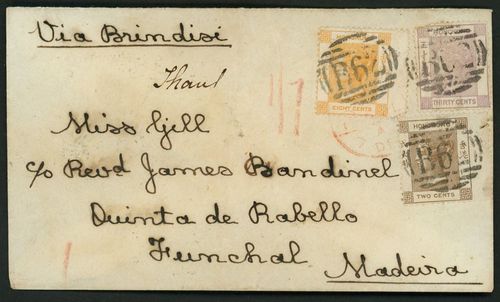 Via Brindisi
Miss Gill
c/o Revd James Bandinel
Quinta de Rabello
Funchal
Madeira
1/7
B62
EIGHT CENTS
B62
THIRTY CENTS
HONG KONG
B62
TWO CENTS